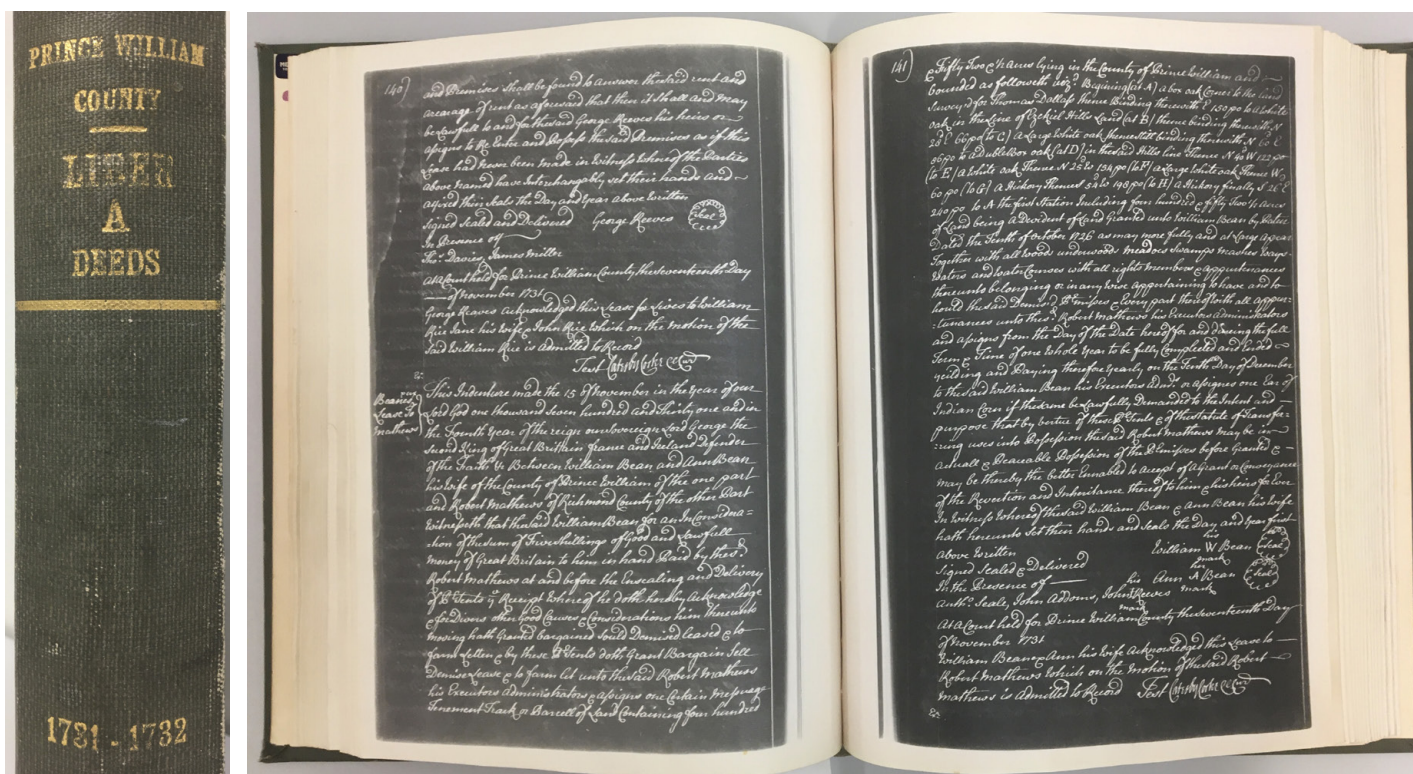 PRINCE WILLIAM
COUNTY
LIBER
A
DEEDS
1731 - 1732
140)
and Premises shall be found to answer the said rent and
arearage of rent as aforesaid that then it Shall and may
be Lawfull to and for the said George Reeves his heirs or
assigns to Re Enter and Possess the said Premises as if this
Lease had never been made in Witness whereof the Parties
above named have Interchangably set their hands and
affixed their Seals the Day and year above Written
Signed Sealed and Delivered George Reeves Seal
In Presence of
Thos. Davies, James Miller
At a Court held for Prince William County the seventeenth Day
of November 1731
George Reaves acknowledged this Lease for Lives to William
Rice Jane his Wife & John Rice which on the motion of the
Said William Rice is admitted to Record
Test Catesby Cocke C Cur
Beans
Lease To
Mathews
This Indenture made the 15 of November in the year of our
Lord God one thousand Seven hundred and Thirty one and in
the Fourth year of the reign our Sovereign Lord George the
Second King of Great Britain France and Ireland Defender
of the Faith &c Between William Bean and Ann Bean
his Wife of the County of Prince William of the one part
and Robert Mathews of Richmond County of the other Part
Witnesseth that the said William Bean for an In Considera=
=tion of the sum of Five Shillings of Good and Lawfull
money of Great Britain to him in hand Paid by the sd.
Robert Mathews at and before the Ensealing and Delivery
of Psents ye Receipt Whereof he doth hereby Acknowledge
& for Divers other Good Causes & Considerations him thereunto
moving hath Granted bargained Sould Demised leased & to
farm Letten & by these Psents doth Grant Bargain Sell
Demise Lease & to farm let unto the said Robert Mathews
his Executors Administrators & assigns one Certain Messuage
Tenement Track or Parcell of Land Containing four hundred
141)
& Fifty Two ½ acres lying in the County of Prince William and
bounded as followeth viz. Begining (at A) a box oak Corner to the land
Survey'd for Thomas Dallass thence Binding therewith E 130 po to a White
oak in the Line of Ezekiel Hills Land (at B) thence binding therewith N
28 E 66 po (to C) a Large White oak thence still binding therewith N 60 E
86 po to a duble Box oak (at D) in the said Hills line Thence N 40 W 122 po
(to E) a White oak Thence N 25 W 134 po (to F) a Large White oak Thence W
60 po (to G) a Hickory Thence S 54 W 198 po (to H) a Hickory finally S 26 E
240 po to A the first Station Including four hundred & fifty Two ½ acres
of Land being a Devident of Land Granted unto William Bean by Patent
Dated the Tenth of October 1726 as may more fully and at Large appear
Together with all woods underwoods meadows swamps mashes Ways
Waters and Water Courses with all rights members & appurtenances
thereunto belonging or in any Wise appertaining to have and to
hould the said Demised Premises & Every part thereof with all appur=
=tenances unto the sd. Robert Mathews his Executors Administrators
and assigns from the Day of the Date hereof for and During the full
Term & Time of one Whole year to be fully Completed and Ended
yeilding and Paying therefore yearly on the Tenth Day of December
to the said William Bean his Executors Admrs. or assignes one Ear of
Indian Corn if the same be Lawfully Demanded to the Intent and
purpose that by vertue of these Psents & of the Statute of Transfer=
=ring uses into Possession the said Robert Mathews may be in
actuall & Peaceable Possession of the Premises before Granted &
may be thereby the better Ennabled to accept of a Grant or Conveyance
of the Revertion and Inheritance thereof to him & his heirs for Ever
In Witness Whereof the said William Bean & Ann Bean his Wife
hath hereunto Set their hands and Seals the Day and Year first
above Written
his
William W Bean Seal
mark
Signed Sealed & Delivered
In the Presence of
her
Ann A Bean Seal
mark
his
Anth. Seale, John Addoms, John Reeves
mark
At a Court held for Prince William County the seventeenth Day
of November 1731
William Bean & Ann his Wife Acknowledged this Lease to
Robert Mathews Which on the Motion of the said Robert
Mathews is admitted to Record Test Catesby Cocke C Cur